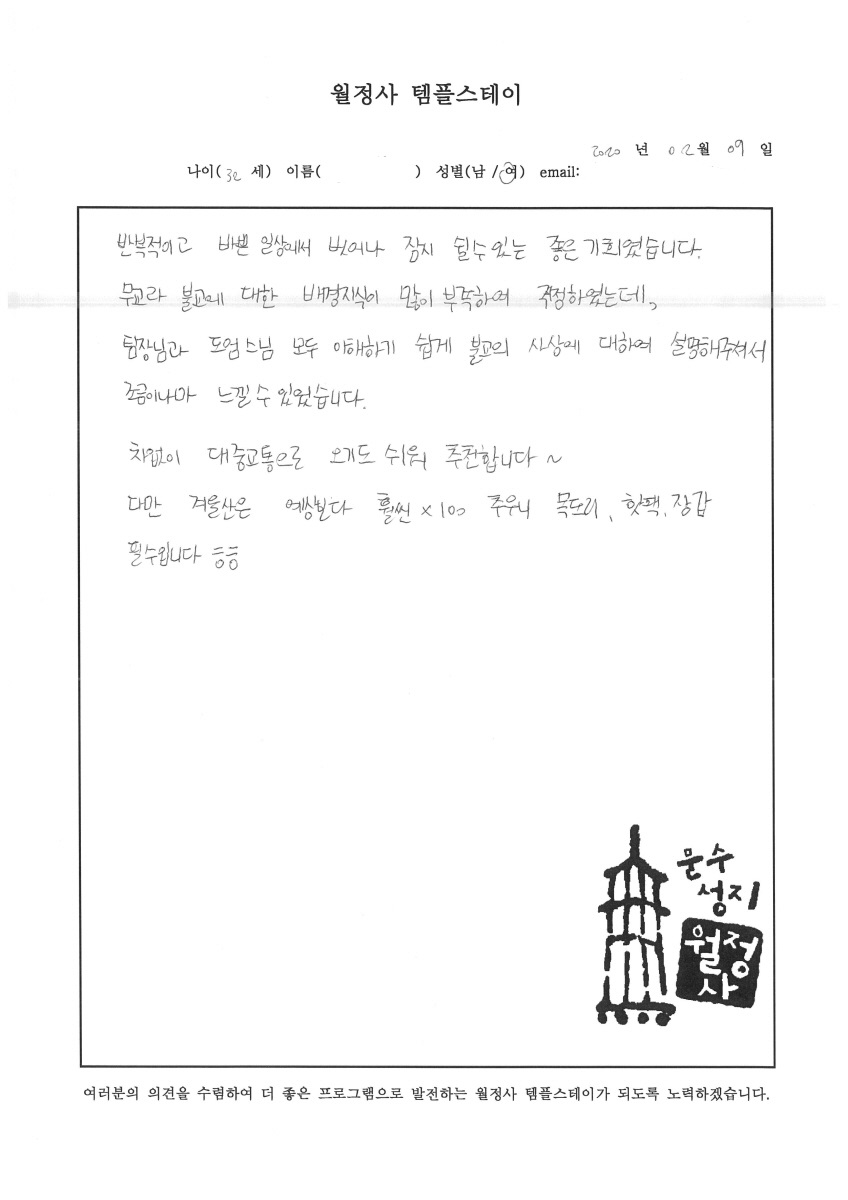 월정사 템플스테이
2020 년 02월 09 일
나이(32 세) 이름( ) 성별(남 / 여) email:
반복적이고 바쁜 일상에서 벗어나 잠시 쉴수있는 좋은기회였습니다.
무교라 불교에 대한 배경지식이 많이 부족하여 걱정하였는데,
팀장님과 도엄스님 모두 이해하기 쉽게 불교의 사상에 대하여 설명해주셔서
조금이나마 느낄 수 있었습니다.
차없이 대중교통으로 오기도 쉬워 추천합니다 ~
다만 겨울산은 예상보다 훨씬 × 100 추우니 목도리, 핫팩, 장갑
필수입니다 ㅎㅎ
문수
성지
월정
사
여러분의 의견을 수렴하여 더 좋은 프로그램으로 발전하는 월정사 템플스테이가 되도록 노력하겠습니다.